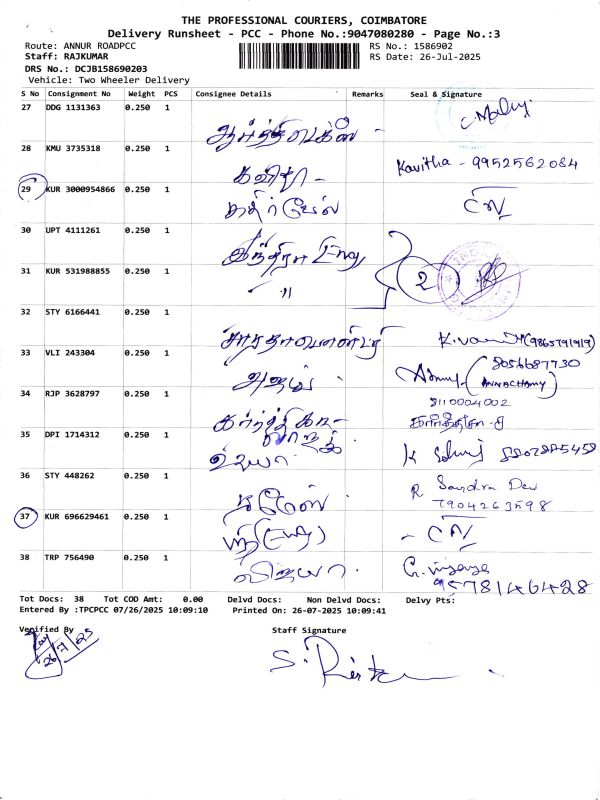 THE PROFESSIONAL COURIERS, COIMBATORE
Delivery Runsheet - PCC - Phone No.:9047080280 - Page No.:3
Route: ANNUR ROADPCC RS No.: 1586902
Staff: RAJKUMAR RS Date: 26-Jul-2025
DRS No.: DCJB158690203
Vehicle: Two Wheeler Delivery
S No Consignment No Weight PCS Consignee Details Remarks Seal & Signature
27 DDG 1131363 0.250 1
28 KMU 3735318 0.250 1 கவிதா - Kavitha - 9952562084
29 KUR 3000954866 0.250 1 கதிர்வேல்
30 UPT 4111261 0.250 1 இந்திரா Eng
31 KUR 531988855 0.250 1 〃 2
32 STY 6166441 0.250 1
33 VLI 243304 0.250 1 8056687730
34 RJP 3628797 0.250 1 கார்த்திகா
35 DPI 1714312 0.250 1 உதயா
36 STY 448262 0.250 1 R Sandra Dev
7904263598
37 KUR 696629461 0.250 1
38 TRP 756490 0.250 1 விஜயா. G. Vijaya
9578146428
Tot Docs: 38 Tot COD Amt: 0.00 Delvd Docs: Non Delvd Docs: Delvy Pts:
Entered By :TPCPCC 07/26/2025 10:09:10 Printed On: 26-07-2025 10:09:41
Verified By Staff Signature
26/7/25